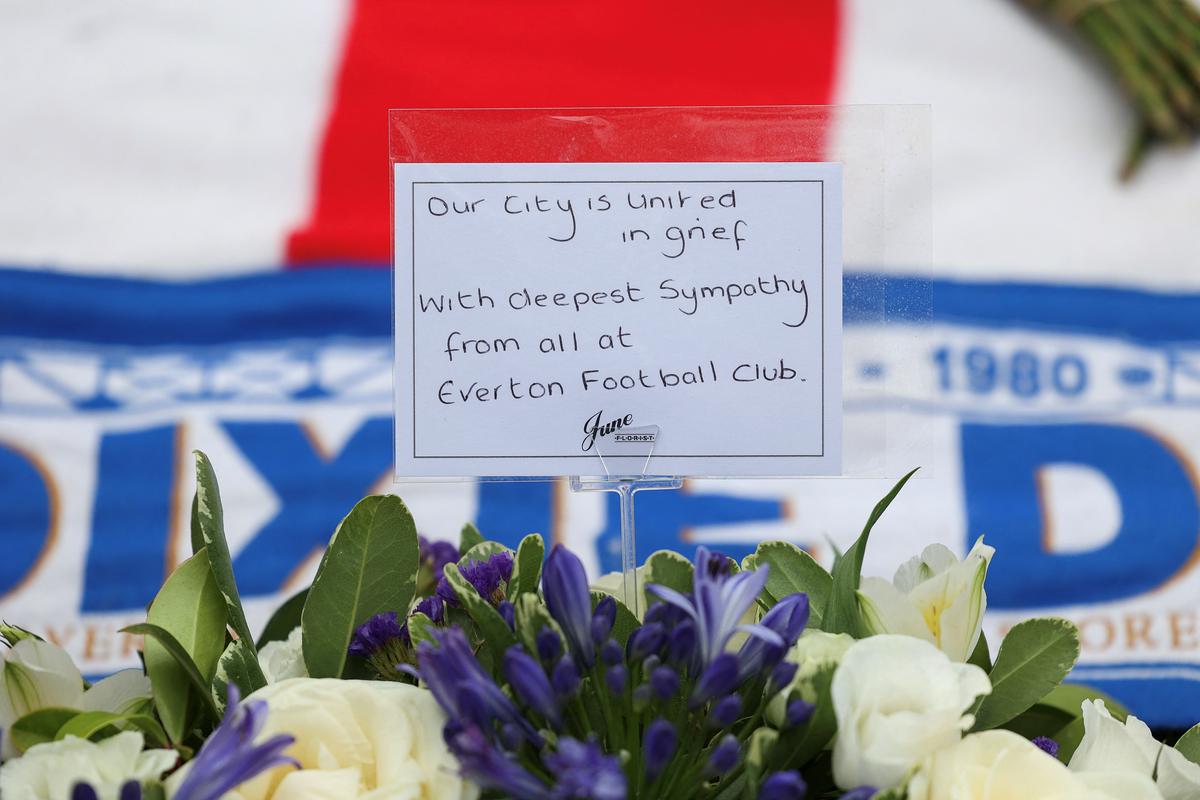 Our City is United
in grief
With deepest Sympathy
from all at
Everton Football Club.
June
FLORIST
1980
DIXIE D
VER
ORE